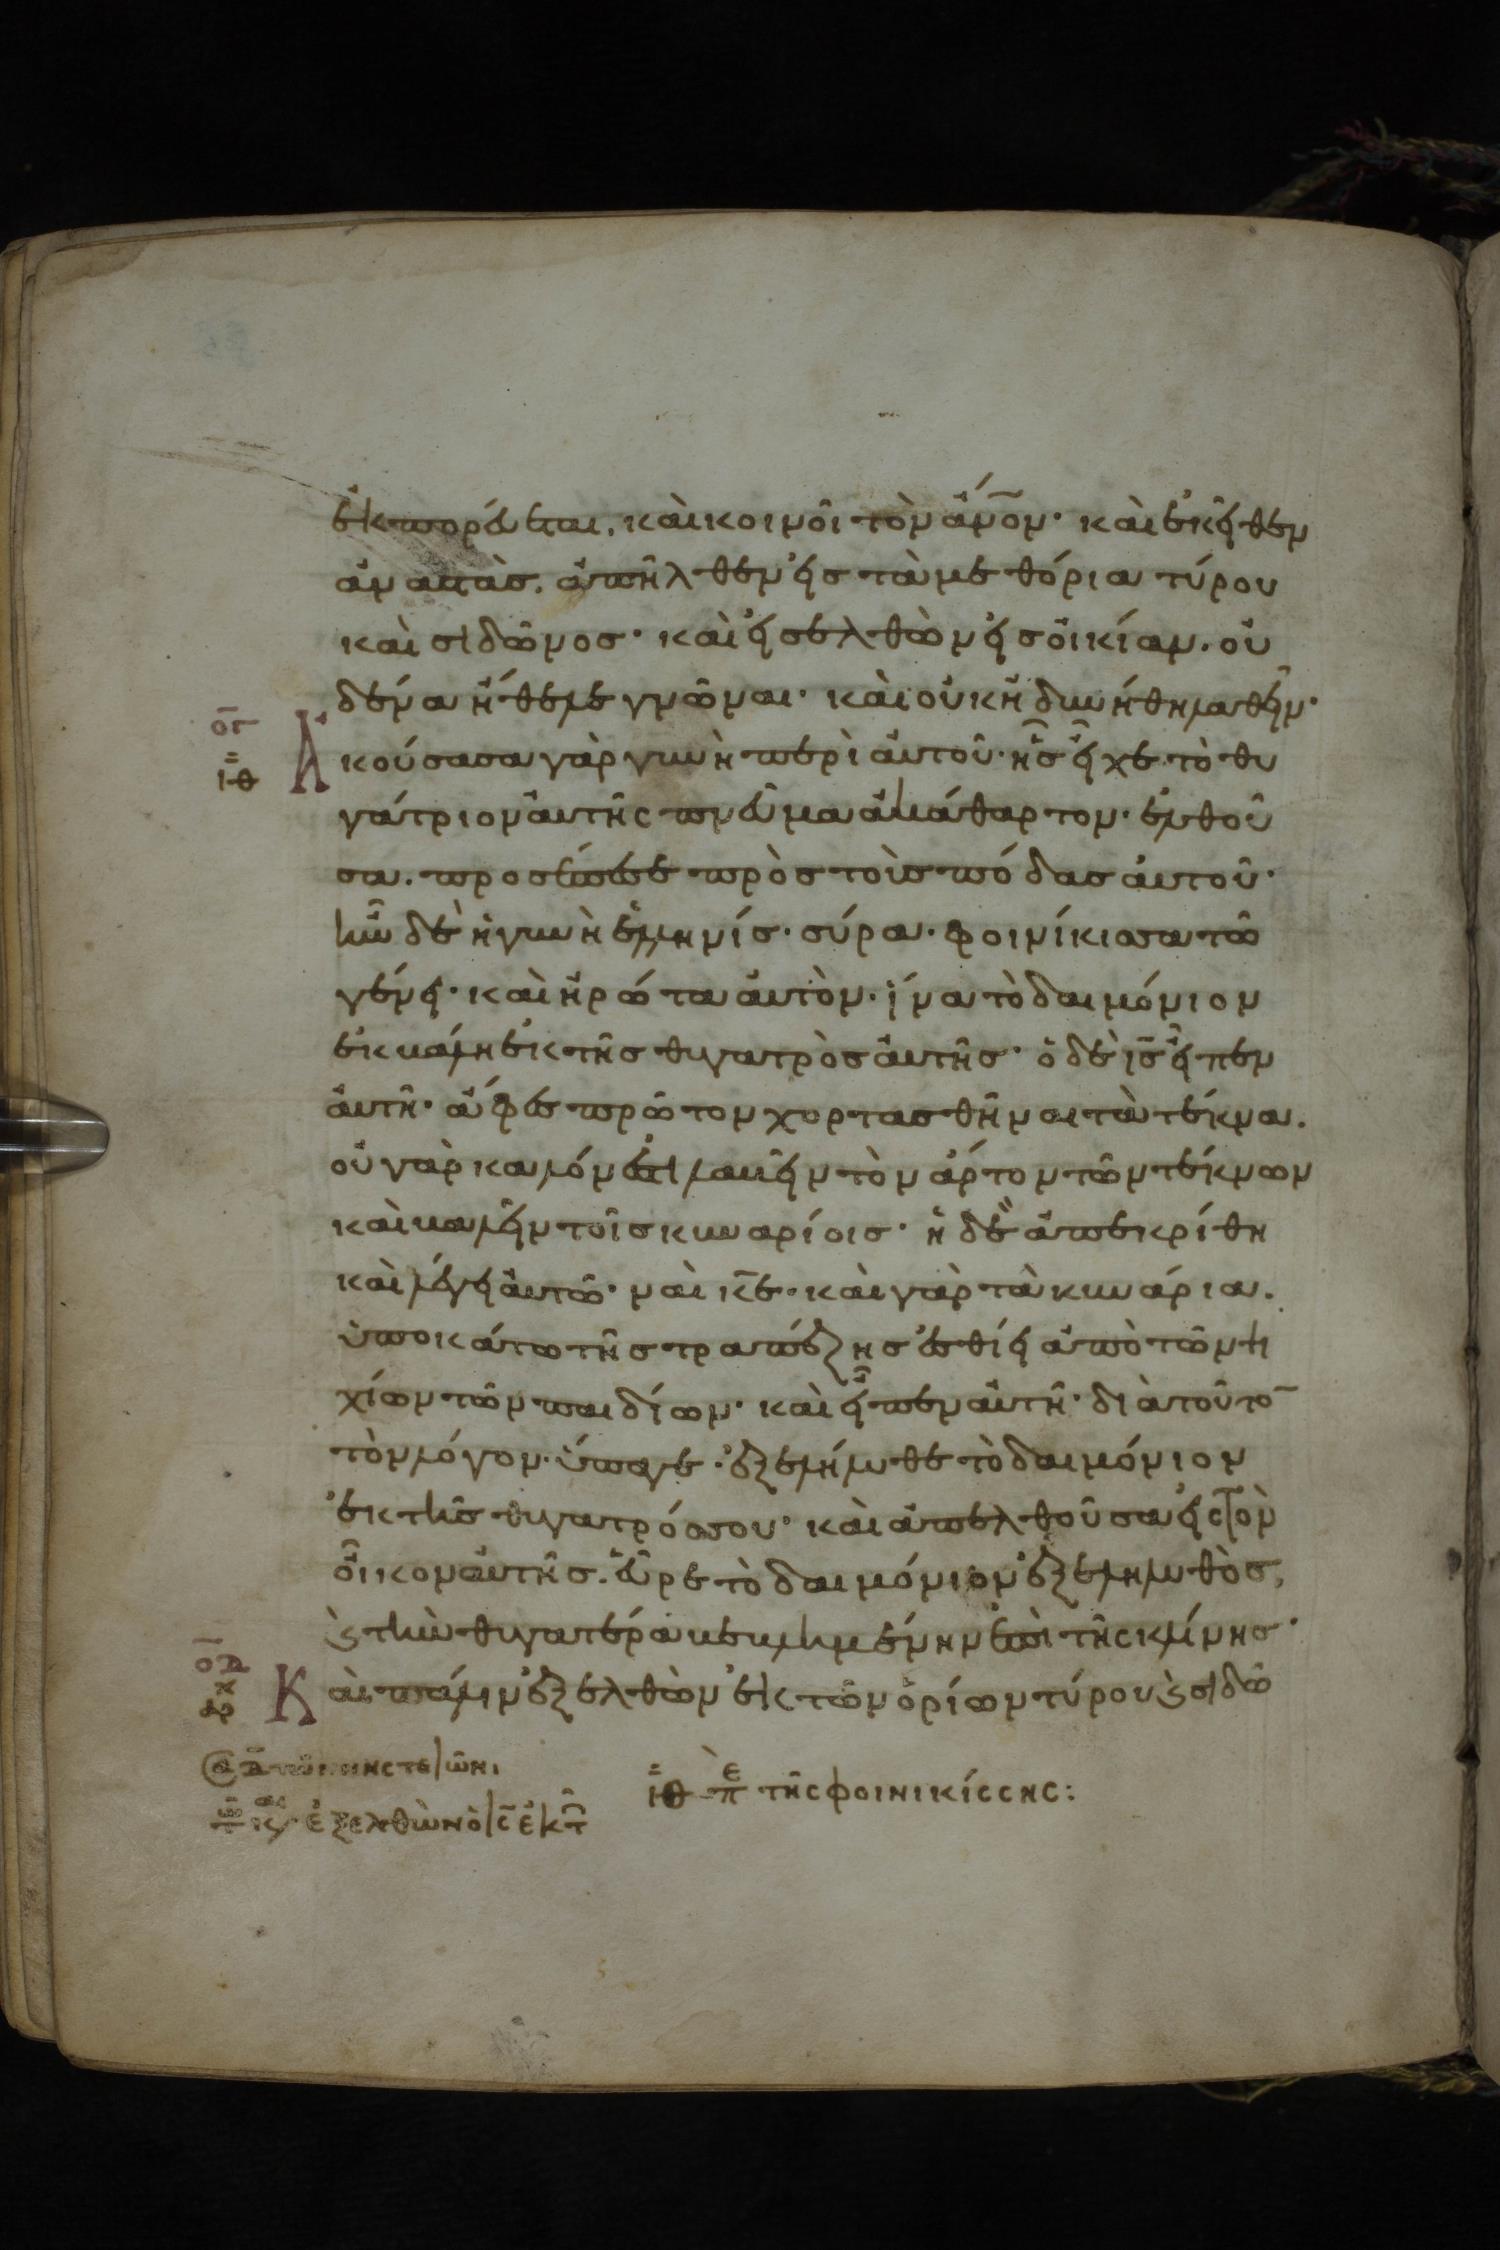 ἐκπορεύεται. καὶ κοινοῖ τὸν ἄν̅ον· καὶ ἐκεῖθεν
ἀναστὰς. ἀπῆλθεν εἰς τὰ μεθόρια τύρου
καὶ σιδῶνος· καὶ εἰσελθὼν εἰς οἰκίαν. οὐ
δένα ἤθελε γνῶναι· καὶ οὐκ ἠδυνήθη λαθεῖν·
ογ
ιθ
Ἀκούσασα γὰρ γυνὴ περὶ αὐτοῦ· ἧς εἶχε τὸ θυ
γάτριον αὐτῆς πνεῦμα ἀκάθαρτον· ἐλθοῦ
σα. προσέπεσε πρὸς τοὺς πόδας αὐτοῦ·
ἦν δὲ ἡ γυνὴ ἑλληνίς· σύρα· φοινίκισσα τῶ
γένει· καὶ ἠρώτα αὐτὸν· ἵνα τὸ δαιμόνιον
ἐκβάλη ἐκ τῆς θυγατρὸς αὐτῆς· ὁ δὲ ι̅ς εἶπεν
αὐτῆ· ἄφες πρῶτον χορτασθῆναι τὰ τέκνα.
οὐ γὰρ καλόν ἐστι λαβεῖν τὸν ἄρτον τῶν τέκνων
καὶ βαλεῖν τοῖς κυναρίοις· ἡ δὲ ἀπεκρίθη
καὶ λέγει αὐτῶ· ναὶ κ̅ε· καὶ γὰρ τὰ κυνάρια.
ὑποκάτω τῆς τραπέζης ἐσθίει ἀπὸ τῶν ψι
χίων τῶν παιδίων· καὶ εἶπεν αὐτῆ· διὰ τοῦτο̅
τὸν λόγον· ὕπαγε· ἐξελήλυθε τὸ δαιμόνιον
ἐκ τῆς θυγατρός σου· καὶ ἀπελθοῦσα εἰς τὸν
οἶκον αὐτῆς. εὗρε τὸ δαιμόνιον ἐξεληλυθὸς,
ϗ τὴν θυγατέρα βεβλημένην ἐπὶ τῆς κλίνης·
οδ
Καὶ πάλιν ἐξελθὼν ἐκ τῶν ὁρίων τύρου ϗ σιδῶ
ἐξελθὼν ὁ ι̅ς ἐκ τ
ιθ πε τῆς φοινικίσσης: